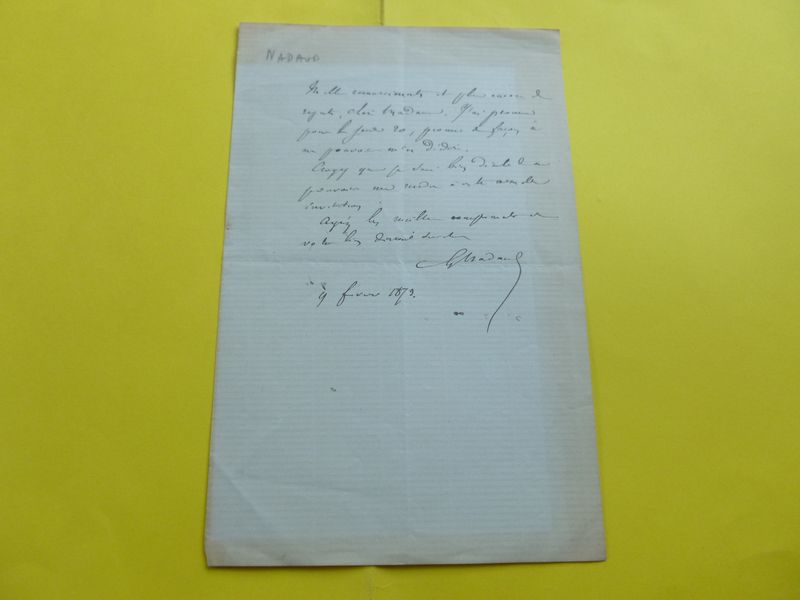 NADAUD
Mille remerciments et plus encore de
regrets, chère Madame. J'ai promis
pour le jeudi 20, promis de façon à
ne pouvoir m'en dédire.
Croyez que je suis bien désolé de ne
pouvoir me rendre à votre aimable
invitation
Agréez les meilleurs compliments de
votre bien dévoué serviteur
G Nadaud
9 février 1873.